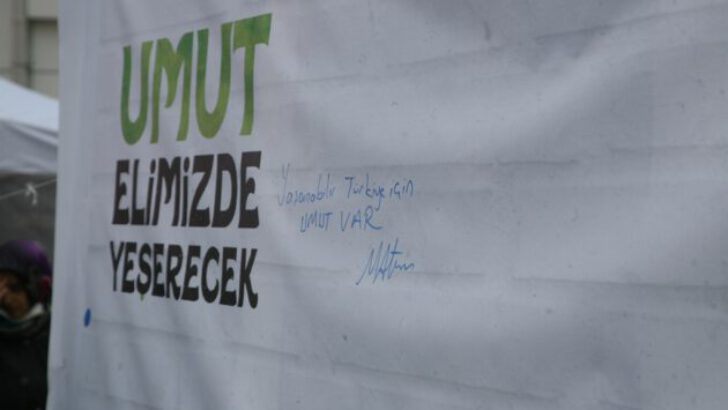 UMUT
ELİMİZDE
YEŞERECEK
Yaşanabilir Türkiye için
UMUT VAR